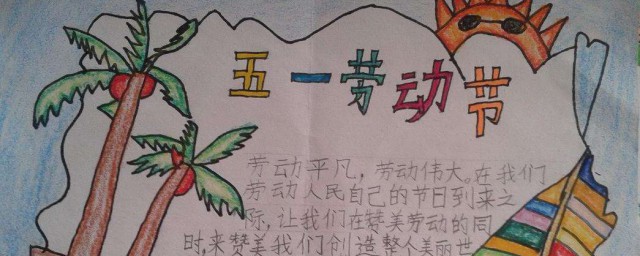 五一劳动节
劳动平凡，劳动伟大。在我们
劳动人民自己的节日到来之
际，让我们在赞美劳动的同
时，来赞美我们创造整个美丽世